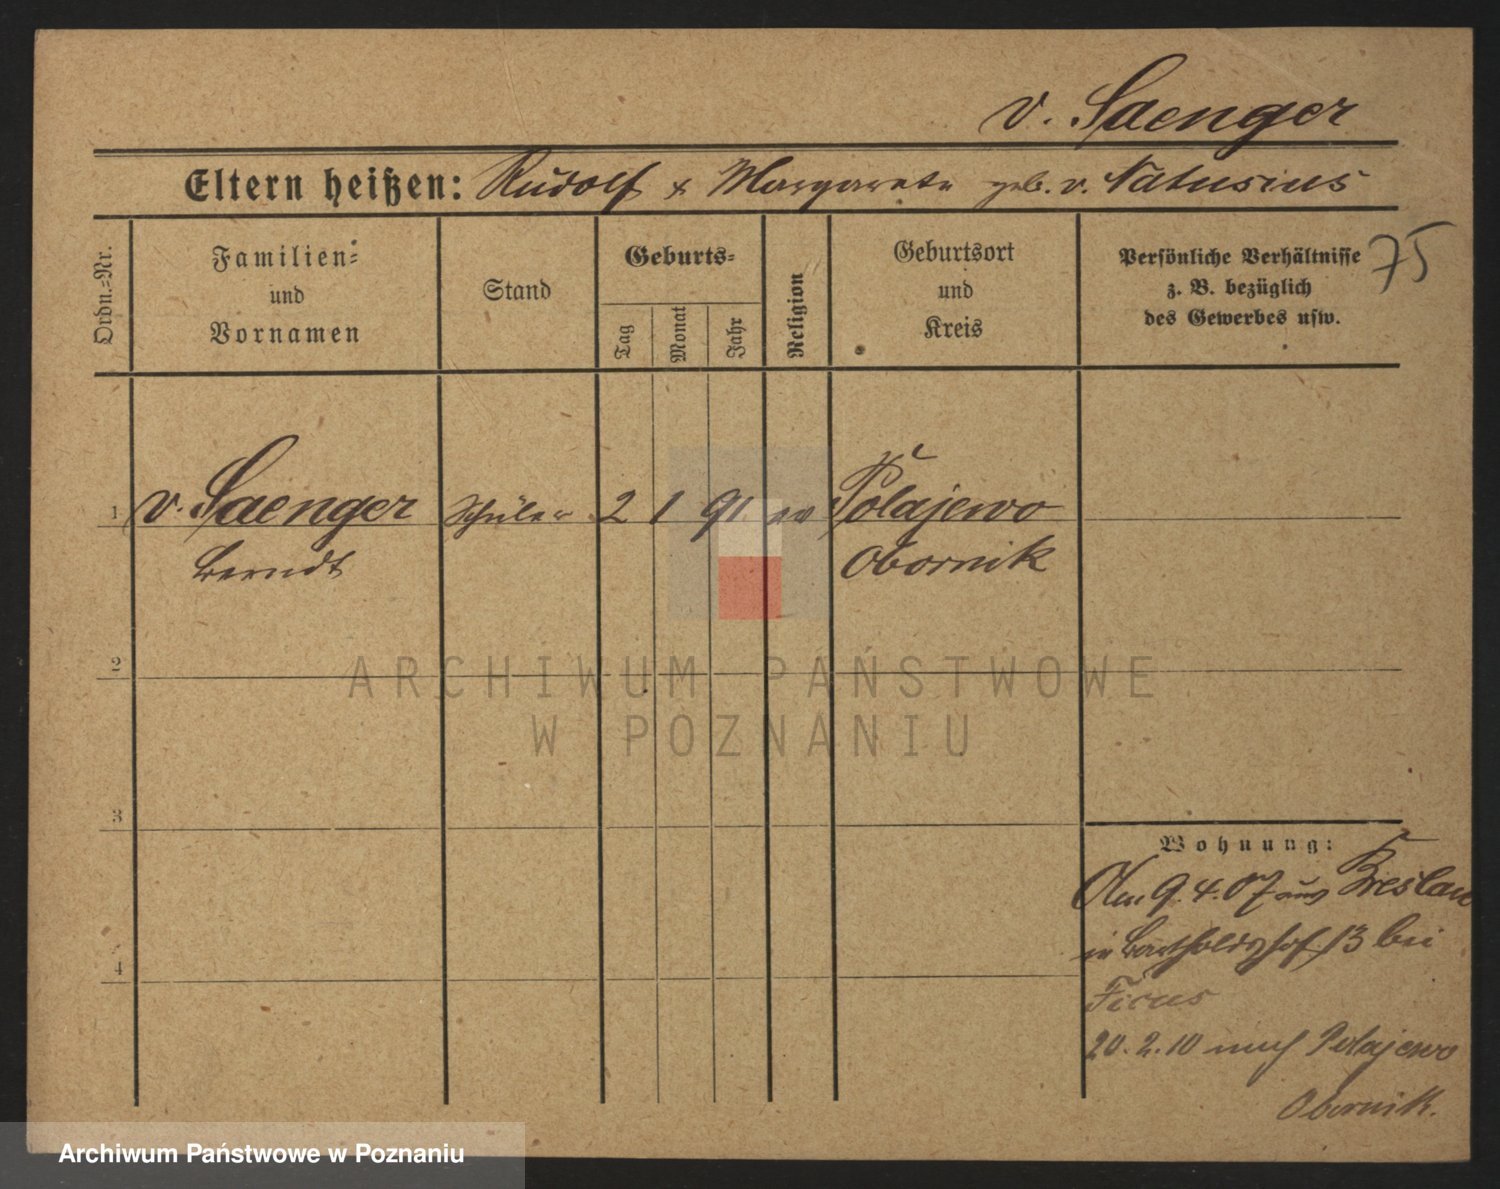 v. Saenger
Eltern heißen: Rudolf & Margarete geb. v. Natusius
75
Ordn.-Nr.
Familien-
und
Vornamen
Stand
Geburts-
Tag
Monat
Jahr
Religion
Geburtsort
und
Kreis
Persönliche Verhältnisse
z. B. bezüglich
des Gewerbes usw.
1 v. Saenger Schüler 2 1 91. ev Polajewo
Berndt Obornik
2
3
4
Wohnung:
Am 9.4.07 aus Breslau
in Bartholdshof 13 bei
Ficus
20.2.10 nach Polajewo
Obornik.
ARCHIWUM PAŃSTWOWE
W POZNANIU
Archiwum Państwowe w Poznaniu